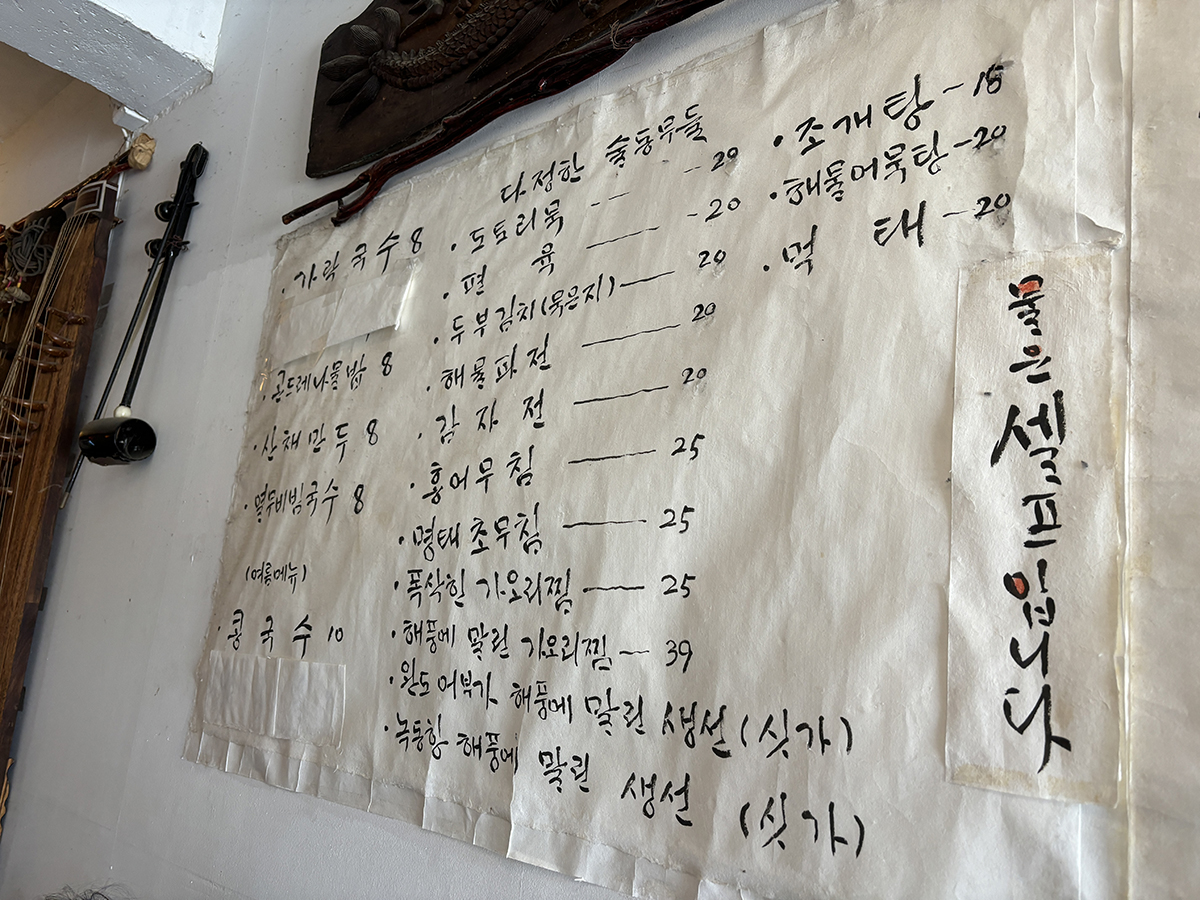 · 가락국수 8
· 곤드레나물밥 8
· 산채만두 8
· 열무비빔국수 8
(여름메뉴)
· 콩국수 10
다정한 술동무들
· 도토리묵 -- - 20
· 편육 — - 20
· 두부김치(묵은지) — 20
· 해물파전 — 20
· 감자전 — 20
· 홍어무침 — 25
· 명태초무침 — 25
· 폭삭힌 가오리찜 — 25
· 해풍에 말린 가오리찜 — 39
· 완도어부가 해풍에 말린 생선 (싯가)
· 녹동항 해풍에 말린 생선 (싯가)
· 조개탕 - 15
· 해물어묵탕 - 20
· 먹태 - 20
물은 셀프입니다